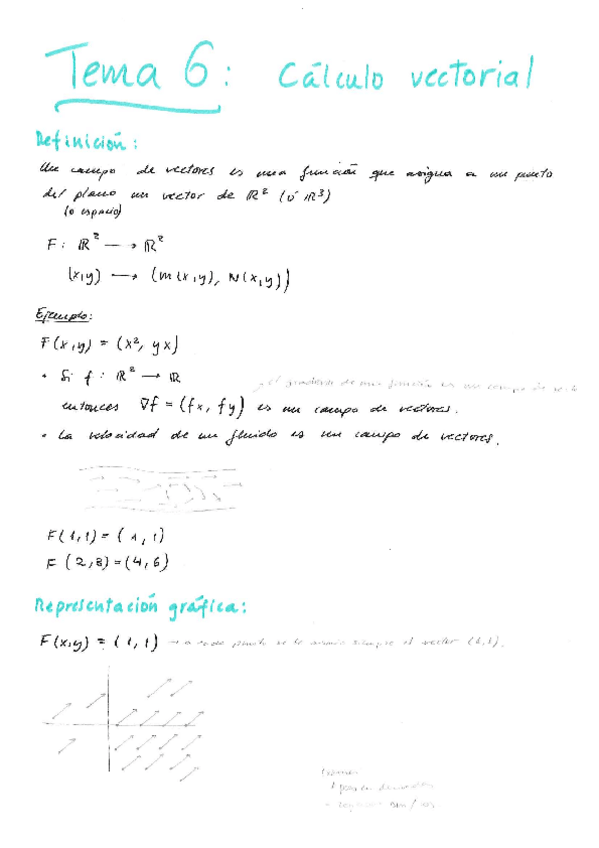 Tema 6: Cálculo vectorial
Definición:
Un campo de vectores es una función que asigna a un punto
del plano un vector de ℝ² (ó ℝ³)
(o espacio)
F: ℝ² → ℝ²
(x,y) → (M(x,y), N(x,y))
Ejemplo:
F(x,y) = (x², yx)
• Si f: ℝ² → ℝ
el gradiente de una función es un campo de
entonces ∇f = (fx, fy) es un campo de vectores.
• La velocidad de un fluido es un campo de vectores.
F(1,1) = (1,1)
F(2,3) = (4,6)
Representación gráfica:
F(x,y) = (1,1) → a cada punto se le asigna siempre el vector (1,1).